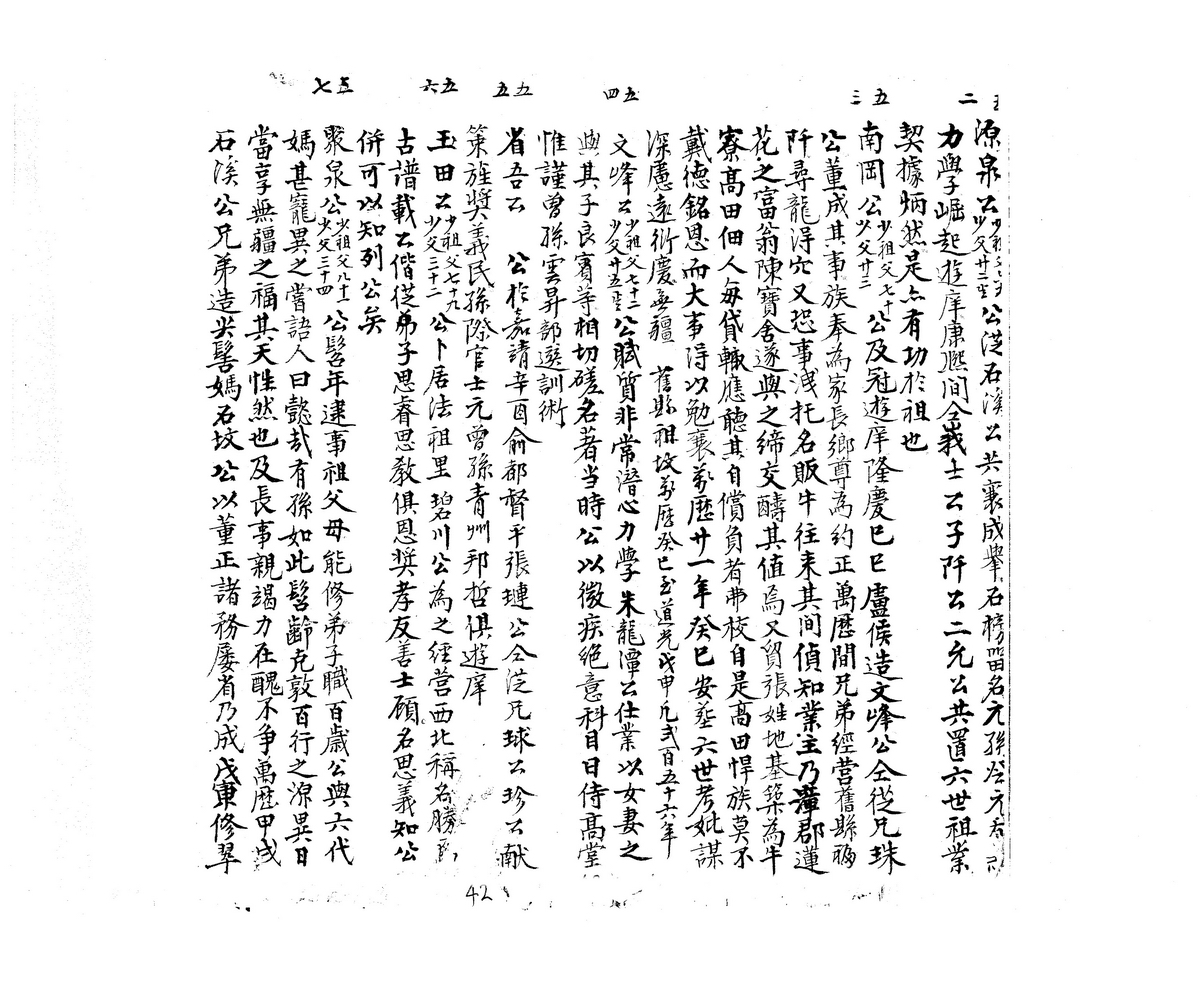 五二
源泉公少父廿三世公從石溪公共襄成舉石榜留名元孫癸元
力學崛起遊庠康熙間全義士公子阡公二允公共置六世祖業
契據炳然是亦有功於祖也
五三
南岡公少祖父七十少父廿三公及冠遊庠隆慶己巳盧侯造文峰公仝從兄珠
公董成其事族奉為家長鄉尊為約正萬歷間兄弟經營舊縣
阡尋龍得穴又恐事洩托名販牛往来其間偵知業主乃漳郡蓮
花之富翁陳寶舍遂與之締交醻其值焉又貿張姓地基築為牛
寮高田佃人每貸輒應聽其自償負者弗校自是高田悍族莫不
戴德銘恩而大事得以勉襄萬歷廿一年癸巳安塟六世考妣謀
深慮遠衍慶無疆 舊縣祖坟萬歷癸巳至道光戊申凡弍百五十六年
五四
文峰公少祖父七十二少父廿五世公賦質非常潛心力學朱龍潭公仕業以女妻之
與其子良賓等相切磋名著当時公以微疾絕意科目日侍高堂
惟謹曾孫雲昇部選訓術
五五
省吾公 公於嘉靖辛酉俞都督平張璉公仝從兄球公珍公献
策旌奬義民孫際官士元曾孫青州邦哲俱遊庠
五六
玉田公少祖父七十九少父三十二公卜居法祖里碧川公為之經營西北稱名勝
古譜載公偕從弟子思睿思敎俱恩奬孝友善士顧名思義知公
併可以知列公矣
五七
聚泉公少祖父八十一少父三十四公髫年逮事祖父母能修弟子職百歲公與六代
媽甚寵異之嘗語人曰懿哉有孫如此髫齡克敦百行之源異日
當享無疆之福其天性然也及長事親竭力在醜不争萬歷甲戌
石溪公兄弟造尖髻媽石坟公以董正諸務屡省乃成戊東修翠
42